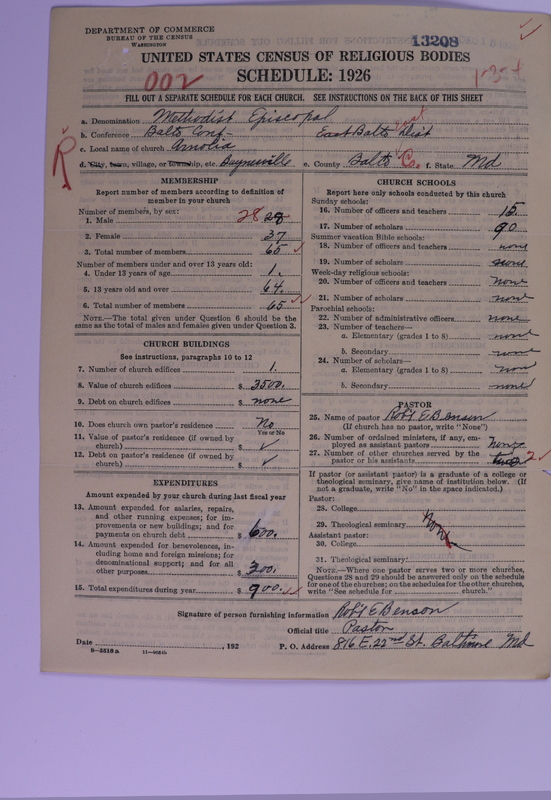 DEPARTMENT OF COMMERCE
BUREAU OF THE CENSUS
WASHINGTON
13208
UNITED STATES CENSUS OF RELIGIOUS BODIES
SCHEDULE: 1926
002
FILL OUT A SEPARATE SCHEDULE FOR EACH CHURCH. SEE INSTRUCTIONS ON THE BACK OF THIS SHEET
a. Denomination Methodist Episcopal
b. Conference Balto Conf- East Balto Dist
c. Local name of church Arnolia
d. City, town, village, or township, etc. Baynesville e. County Balto Co. f. State Md
R
MEMBERSHIP
Report number of members according to definition of member in your church
Number of members, by sex:
1. Male 28 28
2. Female 37
3. Total number of members 65
Number of members under and over 13 years old:
4. Under 13 years of age 1.
5. 13 years old and over 64.
6. Total number of members 65
NOTE.—The total given under Question 6 should be the same as the total of males and females given under Question 3.
CHURCH BUILDINGS
See instructions, paragraphs 10 to 12
7. Number of church edifices 1.
8. Value of church edifices $ 3500.
9. Debt on church edifices $ none
10. Does church own pastor's residence No
Yes or No
11. Value of pastor's residence (if owned by church) $ ✓
12. Debt on pastor's residence (if owned by church) $ ✓
EXPENDITURES
Amount expended by your church during last fiscal year
13. Amount expended for salaries, repairs, and other running expenses; for improvements or new buildings; and for payments on church debt $ 600.
14. Amount expended for benevolences, including home and foreign missions; for denominational support; and for all other purposes $ 300.
15. Total expenditures during year $ 900.
CHURCH SCHOOLS
Report here only schools conducted by this church
Sunday schools:
16. Number of officers and teachers 15
17. Number of scholars 90
Summer vacation Bible schools:
18. Number of officers and teachers none
19. Number of scholars none
Week-day religious schools:
20. Number of officers and teachers none
21. Number of scholars none
Parochial schools:
22. Number of administrative officers none
23. Number of teachers—
a. Elementary (grades 1 to 8) none
b. Secondary none
24. Number of scholars—
a. Elementary (grades 1 to 8) none
b. Secondary none
PASTOR
25. Name of pastor Robt E Benson
(If church has no pastor, write "None")
26. Number of ordained ministers, if any, employed as assistant pastors none
27. Number of other churches served by the pastor or his assistants 2
If pastor (or assistant pastor) is a graduate of a college or theological seminary, give name of institution below. (If not a graduate, write "No" in the space indicated.)
Pastor:
28. College
29. Theological seminary None
Assistant pastor:
30. College
31. Theological seminary:
NOTE.—Where one pastor serves two or more churches, Questions 28 and 29 should be answered only on the schedule for one of the churches; on the schedules for the other churches, write "See schedule for church."
Signature of person furnishing information Robt E Benson
Official title Pastor
Date , 192 P. O. Address 816 E. 22nd St. Baltimore Md